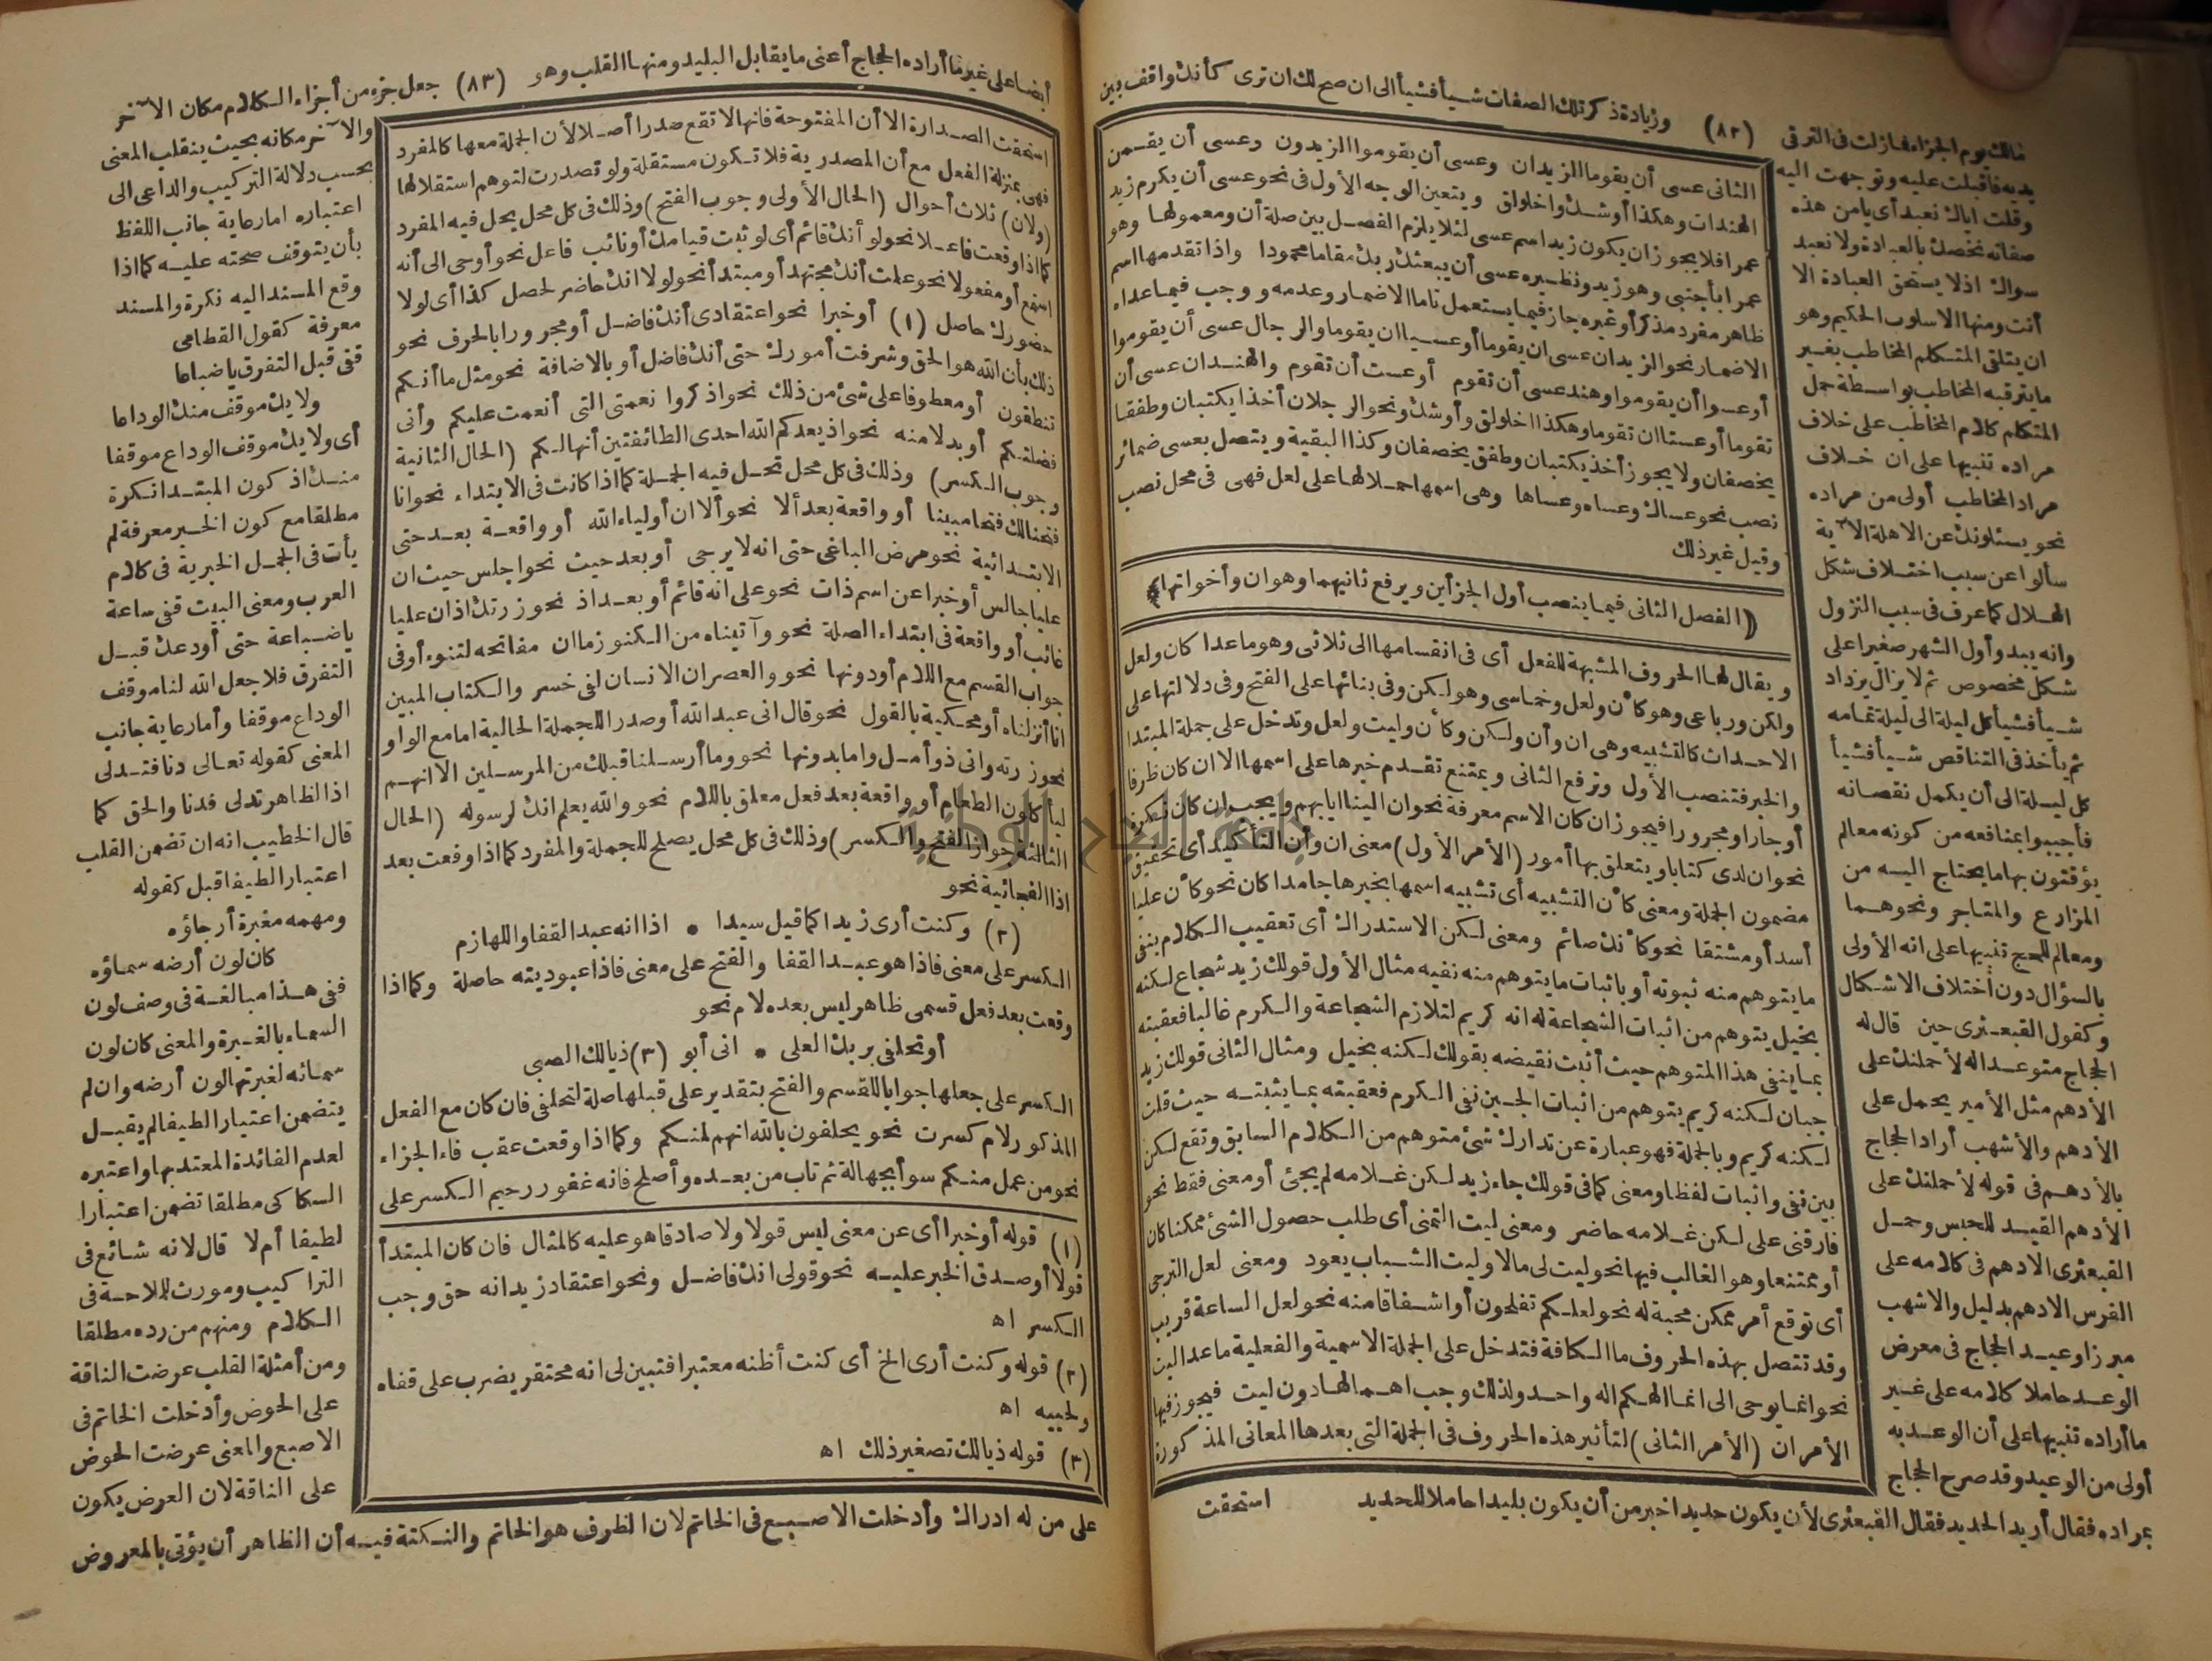 مالك يوم الجزاء فازلت فى الترقى (٨٢) وزيادة ذكر تلك الصفات شيأ فشيأ الى ان صح لك ان ترى كأنك واقف بين
يديه فاقبلت عليه وتوجهت اليه
وقلت اياك نعبد أى يامن هذه
صفاته نخصك بالعبادة ولا نعبد
سواك اذلا يستحق العبادة الا
أنت ومنها الاسلوب الحكيم وهو
ان يتلقى المتكلم المخاطب بغير
ما يترقبه المخاطب بواسطة حمل
المتكلم كلام المخاطب على خلاف
مراده تنبيها على ان خلاف
مراد المخاطب أولى من مراده
نحو يسئلونك عن الاهلة الآية
سألوا عن سبب اختلاف شكل
الهلال كما عرف فى سبب النزول
وانه يبدو أول الشهر صغيرا على
شكل مخصوص ثم لا يزال يزداد
شيأ فشيأ كل ليلة الى ليلة تمامه
ثم يأخذ فى التناقص شيأ فشيأ
كل ليلة الى أن يكمل نقصانه
فأجيبوا بمنافعه من كونه معالم
يؤقتون بها ما يحتاج اليه من
المزارع والمتاجر ونحوهما
ومعالم للحج تنبيها على انه الأولى
بالسؤال دون اختلاف الاشكال
وكقول القبعثرى حين قال له
الحجاج متوعدا له لأحملنك على
الأدهم مثل الأمير يحمل على
الأدهم والأشهب أراد الحجاج
بالأدهم فى قوله لأحملنك على
الأدهم القيد للحبس وحمل
القبعثرى الادهم فى كلامه على
الفرس الادهم بدليل والاشهب
مبرزا وعيد الحجاج فى معرض
الوعد حاملا كلامه على غير
ما أراده تنبيها على أن الوعد به
أولى من الوعيد وقد صرح الحجاج
بمراده فقال أريد الحديد فقال القبعثرى لأن يكون حديدا خير من أن يكون بليدا حاملا للحديد
الثانى عسى أن يقوما الزيدان وعسى أن يقوموا الزيدون وعسى أن يقمن
الهندات وهكذا أوشك واخلولق ويتعين الوجه الأول فى نحو عسى أن يكرم زيد
عمرا فلا يجوز ان يكون زيد اسم عسى لئلا يلزم الفصل بين صلة أن ومعمولها وهو
عمرا بأجنبى وهو زيد ونظيره عسى أن يبعثك ربك مقاما محمودا واذا تقدمها اسم
ظاهر مفرد مذكر أو غيره جاز فيما يستعمل تاما الاضمار وعدمه ووجب فيما عداه
الاضمار نحو الزيدان عسى ان يقوما أو عسيا ان يقوما والرجال عسى أن يقوموا
أو عسوا أن يقوموا وهند عسى أن تقوم أو عست أن تقوم والهندان عسى أن
تقوما أو عستا ان تقوما وهكذا اخلولق وأوشك ونحو الرجلان أخذا يكتبان وطفقا
يخصفان ولا يجوز أخذ يكتبان وطفق يخصفان وكذا البقية ويتصل بعسى ضمائر
نصب نحو عساك وعساه وعساها وهى اسمها حملا لها على لعل فهى فى محل نصب
وقيل غير ذلك
﴿الفصل الثانى فيما ينصب أول الجزأين ويرفع ثانيهما وهو ان وأخواتها﴾
ويقال لها الحروف المشبهة للفعل أى فى انقسامها الى ثلاثى وهو ماعدا كان ولعل
ولكن ورباعى وهو كأن ولعل وخماسى وهو لكن وفى بنائها على الفتح وفى دلالتها على
الاحداث كالتشبيه وهى ان وأن ولكن وكأن وليت ولعل وتدخل على جملة المبتدا
والخبر فتنصب الأول وترفع الثانى ويمتنع تقدم خبرها على اسمها الا ان كان ظرفا
أو جارا ومجرورا فيجوز ان كان الاسم معرفة نحو ان الينا ايابهم ويجب ان كان نكرة
نحو ان لدى كتابا ويتعلق بها أمور (الأمر الأول) معنى ان وأن التأكيد أى تحقيق
مضمون الجملة ومعنى كأن التشبيه أى تشبيه اسمها بخبرها جامدا كان نحو كأن عليا
أسد أو مشتقا نحو كأنك صائم ومعنى لكن الاستدراك أى تعقيب الكلام بنفى
ما يتوهم منه ثبوته أو باثبات ما يتوهم منه نفيه مثال الأول قولك زيد شجاع لكنه
بخيل يتوهم من اثبات الشجاعة له انه كريم لتلازم الشجاعة والكرم غالبا فعقبته
بما ينفى هذا المتوهم حيث أثبت نقيضه بقولك لكنه بخيل ومثال الثانى قولك زيد
جبان لكنه كريم يتوهم من اثبات الجبن نفى الكرم فعقبته بما يثبته حيث قلت
لكنه كريم وبالجملة فهو عبارة عن تدارك شئ متوهم من الكلام السابق وتقع لكن
بين نفى واثبات لفظا ومعنى كما فى قولك جاء زيد لكن غلامه لم يجئ أو معنى فقط نحو
فارقنى على لكن غلامه حاضر ومعنى ليت التمنى أى طلب حصول الشئ ممكنا كان
أو ممتنعا وهو الغالب فيها نحو ليت لى مالا وليت الشباب يعود ومعنى لعل الترجى
أى توقع أمر ممكن محبة له نحو لعلكم تفلحون أو اشفاقا منه نحو لعل الساعة قريب
وقد تتصل بهذه الحروف ما الكافة فتدخل على الجملة الاسمية والفعلية ماعدا ليت
نحو انما يوحى الى انما الهكم اله واحد ولذلك وجب اهمالها دون ليت فيجوز فيها
الأمران (الأمر الثانى) لتأثير هذه الحروف فى الجملة التى بعدها المعانى المذكورة
استحقت
أيضا على غير ما أراده الحجاج أعنى ما يقابل البليد ومنها القلب وهو (٨٣) جعل جزء من أجزاء الكلام مكان الآخر
استحقت الصدارة الا أن المفتوحة فانها لا تقع صدرا أصلا لأن الجملة معها كالمفرد
فهى بمنزلة الفعل مع أن المصدرية فلا تكون مستقلة ولو تصدرت لتوهم استقلالها
(ولان) ثلاث أحوال (الحال الأولى وجوب الفتح) وذلك فى كل محل يحل فيه المفرد
كما اذا وقعت فاعلا نحو لو أنك قائم أى لو ثبت قيامك أو نائب فاعل نحو أوحى الى أنه
استمع أو مفعولا نحو علمت أنك مجتهد أو مبتدأ نحو لولا انك حاضر لحصل كذا أى لولا
حضورك حاصل (١) أو خبرا نحو اعتقادى أنك فاضل أو مجرورا بالحرف نحو
ذلك بأن الله هو الحق وشرفت أمورك حتى أنك فاضل أو بالاضافة نحو مثل ما أنكم
تنطقون أو معطوفا على شئ من ذلك نحو اذكروا نعمتى التى أنعمت عليكم وأنى
فضلتكم أو بدلا منه نحو واذ يعدكم الله احدى الطائفتين أنها لكم (الحال الثانية
وجوب الكسر) وذلك فى كل محل تحل فيه الجملة كما اذا كانت فى الابتداء نحو انا
فتحنا لك فتحا مبينا أو واقعة بعد ألا نحو ألا ان أولياء الله أو واقعة بعد حتى
الابتدائية نحو مرض الباغى حتى انه لا يرجى أو بعد حيث نحو اجلس حيث ان
عليا جالس أو خبرا عن اسم ذات نحو على انه قائم أو بعد اذ نحو زرتك اذ ان عليا
غائب أو واقعة فى ابتداء الصلة نحو وآتيناه من الكنوز ما ان مفاتحه لتنوء أو فى
جواب القسم مع اللام أو دونها نحو والعصر ان الانسان لفى خسر والكتاب المبين
انا أنزلناه أو محكية بالقول نحو قال انى عبد الله أو صدرا للجملة الحالية اما مع الواو
نحو زرته وانى ذو أمل واما بدونها نحو وما أرسلنا قبلك من المرسلين الا انهم
ليأكلون الطعام أو واقعة بعد فعل معلق باللام نحو والله يعلم انك لرسوله (الحال
الثالثة جواز الفتح والكسر) وذلك فى كل محل يصلح للجملة والمفرد كما اذا وقعت بعد
اذا الفجائية نحو
(٢) وكنت أرى زيدا كما قيل سيدا • اذا انه عبد القفا واللهازم
الكسر على معنى فاذا هو عبد القفا والفتح على معنى فاذا عبوديته حاصلة وكما اذا
وقعت بعد فعل قسمى ظاهر ليس بعده لام نحو
أو تحلفى بربك العلى • انى أبو (٣) ذيالك الصبى
الكسر على جعلها جوابا للقسم والفتح بتقدير على قبلها صلة لتحلفى فان كان مع الفعل
المذكور لام كسرت نحو يحلفون بالله انهم لمنكم وكما اذا وقعت عقب فاء الجزاء
نحو من عمل منكم سوأ بجهالة ثم تاب من بعده وأصلح فانه غفور رحيم الكسر على
(١) قوله أو خبرا أى عن معنى ليس قولا ولا صادقا هو عليه كالمثال فان كان المبتدأ
قولا أو صدق الخبر عليه نحو قولى انك فاضل ونحو اعتقاد زيد انه حق وجب
الكسر اه
(٢) قوله وكنت أرى الخ أى كنت أظنه معتبرا فتبين لى انه محتقر يضرب على قفاه
ولحييه اه
(٣) قوله ذيالك تصغير ذلك اه
والآخر مكانه بحيث ينقلب المعنى
بحسب دلالة التركيب والداعى الى
اعتباره اما رعاية جانب اللفظ
بأن يتوقف صحته عليه كما اذا
وقع المسند اليه نكرة والمسند
معرفة كقول القطامى
قفى قبل التفرق يا ضباعا
ولا يك موقف منك الوداعا
أى ولا يك موقف الوداع موقفا
منك اذ كون المبتدا نكرة
مطلقا مع كون الخبر معرفة لم
يأت فى الجمل الخبرية فى كلام
العرب ومعنى البيت قفى ساعة
يا ضباعة حتى أودعك قبل
التفرق فلا جعل الله لنا موقف
الوداع موقفا وأما رعاية جانب
المعنى كقوله تعالى دنا فتدلى
اذ الظاهر تدلى فدنا والحق كما
قال الخطيب انه ان تضمن القلب
اعتبارا لطيفا قبل كقوله
ومهمه مغبرة أرجاؤه
كان لون أرضه سماؤه
ففى هذا مبالغة فى وصف لون
السماء بالغبرة والمعنى كان لون
سمائه لغبرتها لون أرضه وان لم
يتضمن اعتبارا لطيفا لم يقبل
لعدم الفائدة المعتد بها واعتبره
السكاكى مطلقا تضمن اعتبارا
لطيفا أم لا قال لانه شائع فى
التراكيب ومورث للملاحة فى
الكلام ومنهم من رده مطلقا
ومن أمثلة القلب عرضت الناقة
على الحوض وأدخلت الخاتم فى
الاصبع والمعنى عرضت الحوض
على الناقة لان العرض يكون
على من له ادراك وأدخلت الاصبع فى الخاتم لان الظرف هو الخاتم والنكتة فيه أن الظاهر أن يؤتى بالمعروض